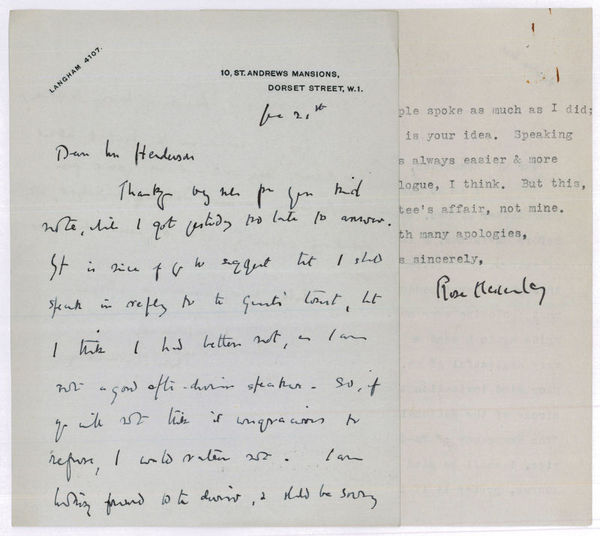 LANGHAM 4107.
10, ST. ANDREWS MANSIONS,
DORSET STREET, W.1.
21st
Dear Mr Henderson
Thank you very much for your kind
note, which I got yesterday too late to answer.
It is nice of you to suggest that I should
speak in reply to the Guests' toast, but
I think I had better not, as I am
not a good after-dinner speaker. So, if
you will not think it ungracious to
refuse, I would rather not. I am
looking forward to the dinner, & should be sorry
ple spoke as much as I did;
is your idea. Speaking
s always easier & more
logue, I think. But this,
tee's affair, not mine.
th many apologies,
s sincerely,
Rose Macaulay